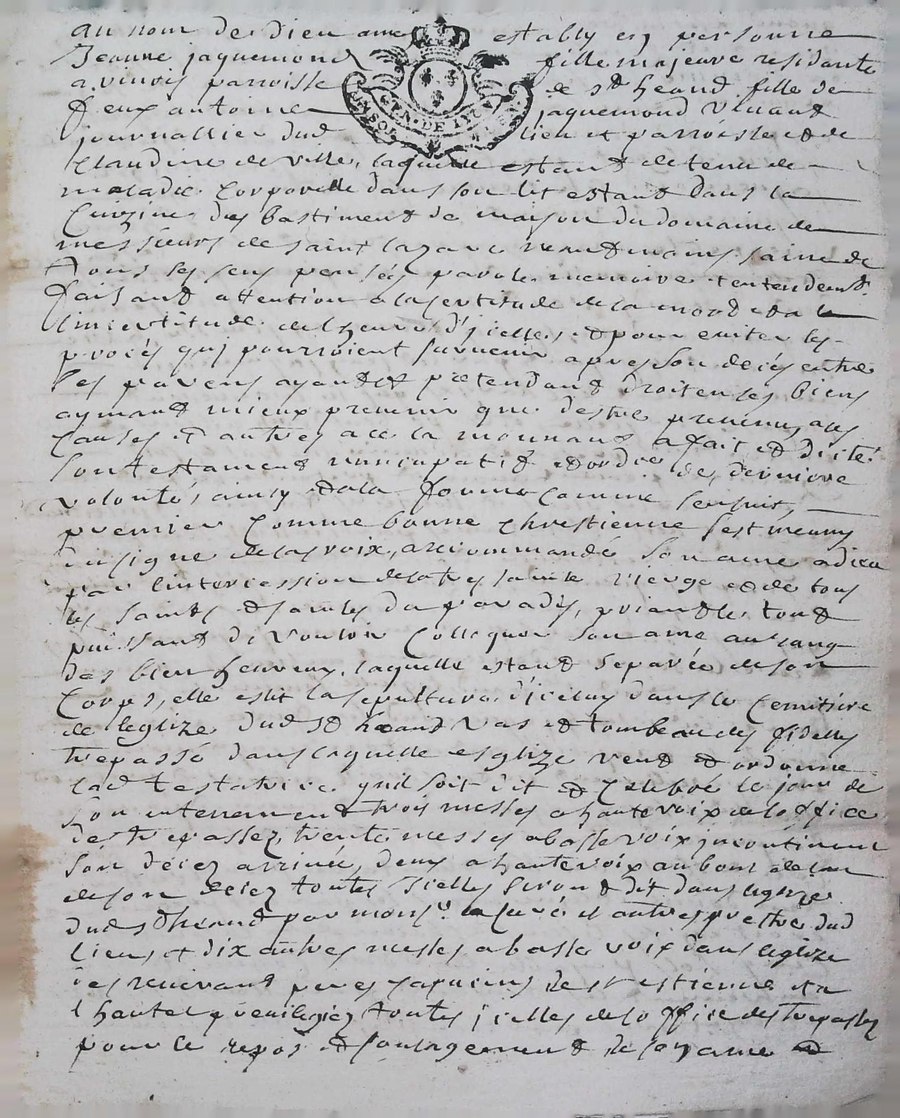 au nom de dieu amen establÿ en personne
Jeanne jaquemond fille majeure residante
a vinois parroisse de st heand fille de
feux antoine jaquemond vivant
journallier dud lieu et parroisse et de
Claudine deville, laquelle estant detenue de
maladie corporelle dans son lit estant dans la
Cuizine des bastiment de maison du domaine de
messieurs de saint lazare neantmoins saine de
tous ses sens pensée parole memoire et entendemt
faisant attention a la sertitude de la mord et a
lincertitude de lheure d'jcelle, et pour eviter les
procés quj pourroient survenir apres son decés entre
ses parens ayant et pretendant droit en ses biens
aymant mieux prevenir que destre prevenue, a ces
causes et autres a ce la mouvant a fait et dicté
son testament nuncupatif et ordre de derniere
volonté ainsy et a la forme comme sensuit,
premier comme bonne chrestienne sest munie
du signe de la croix, a recommandé son ame a dieu
par lintercession de la tres sainte vierge et de tous
les saints et saintes du paradis, priant le tout
puissant de vouloir collequer son ame au rang
des bien heureux, laquelle estant separée de son
Corps, elle eslit la sepulture d'icelluy dans le Cemitiere
de leglize dud st heand vas et tombeau des fidelles
trepassé dans laquelle esglize veut et ordonne
lad testatrice quil soit dit et Celebré le jour de
son enterrement trois messes a haute voix de loffice
des trepassez, trente messes a basse voix jncontinent
son decez arrivée, deux a haute voix au bout de lan
de son decez toutes icelles seront dit dans leglize
dud st heand par monsr le Curé et autres prestre dud
lieu, et dix autres messes a basse voix dans leglize
des reverant peres capucins de st estienne et a
lhautel previlegiez toutes jcelles de loffice des trepassez
pour le repos et soulagement de son ame et